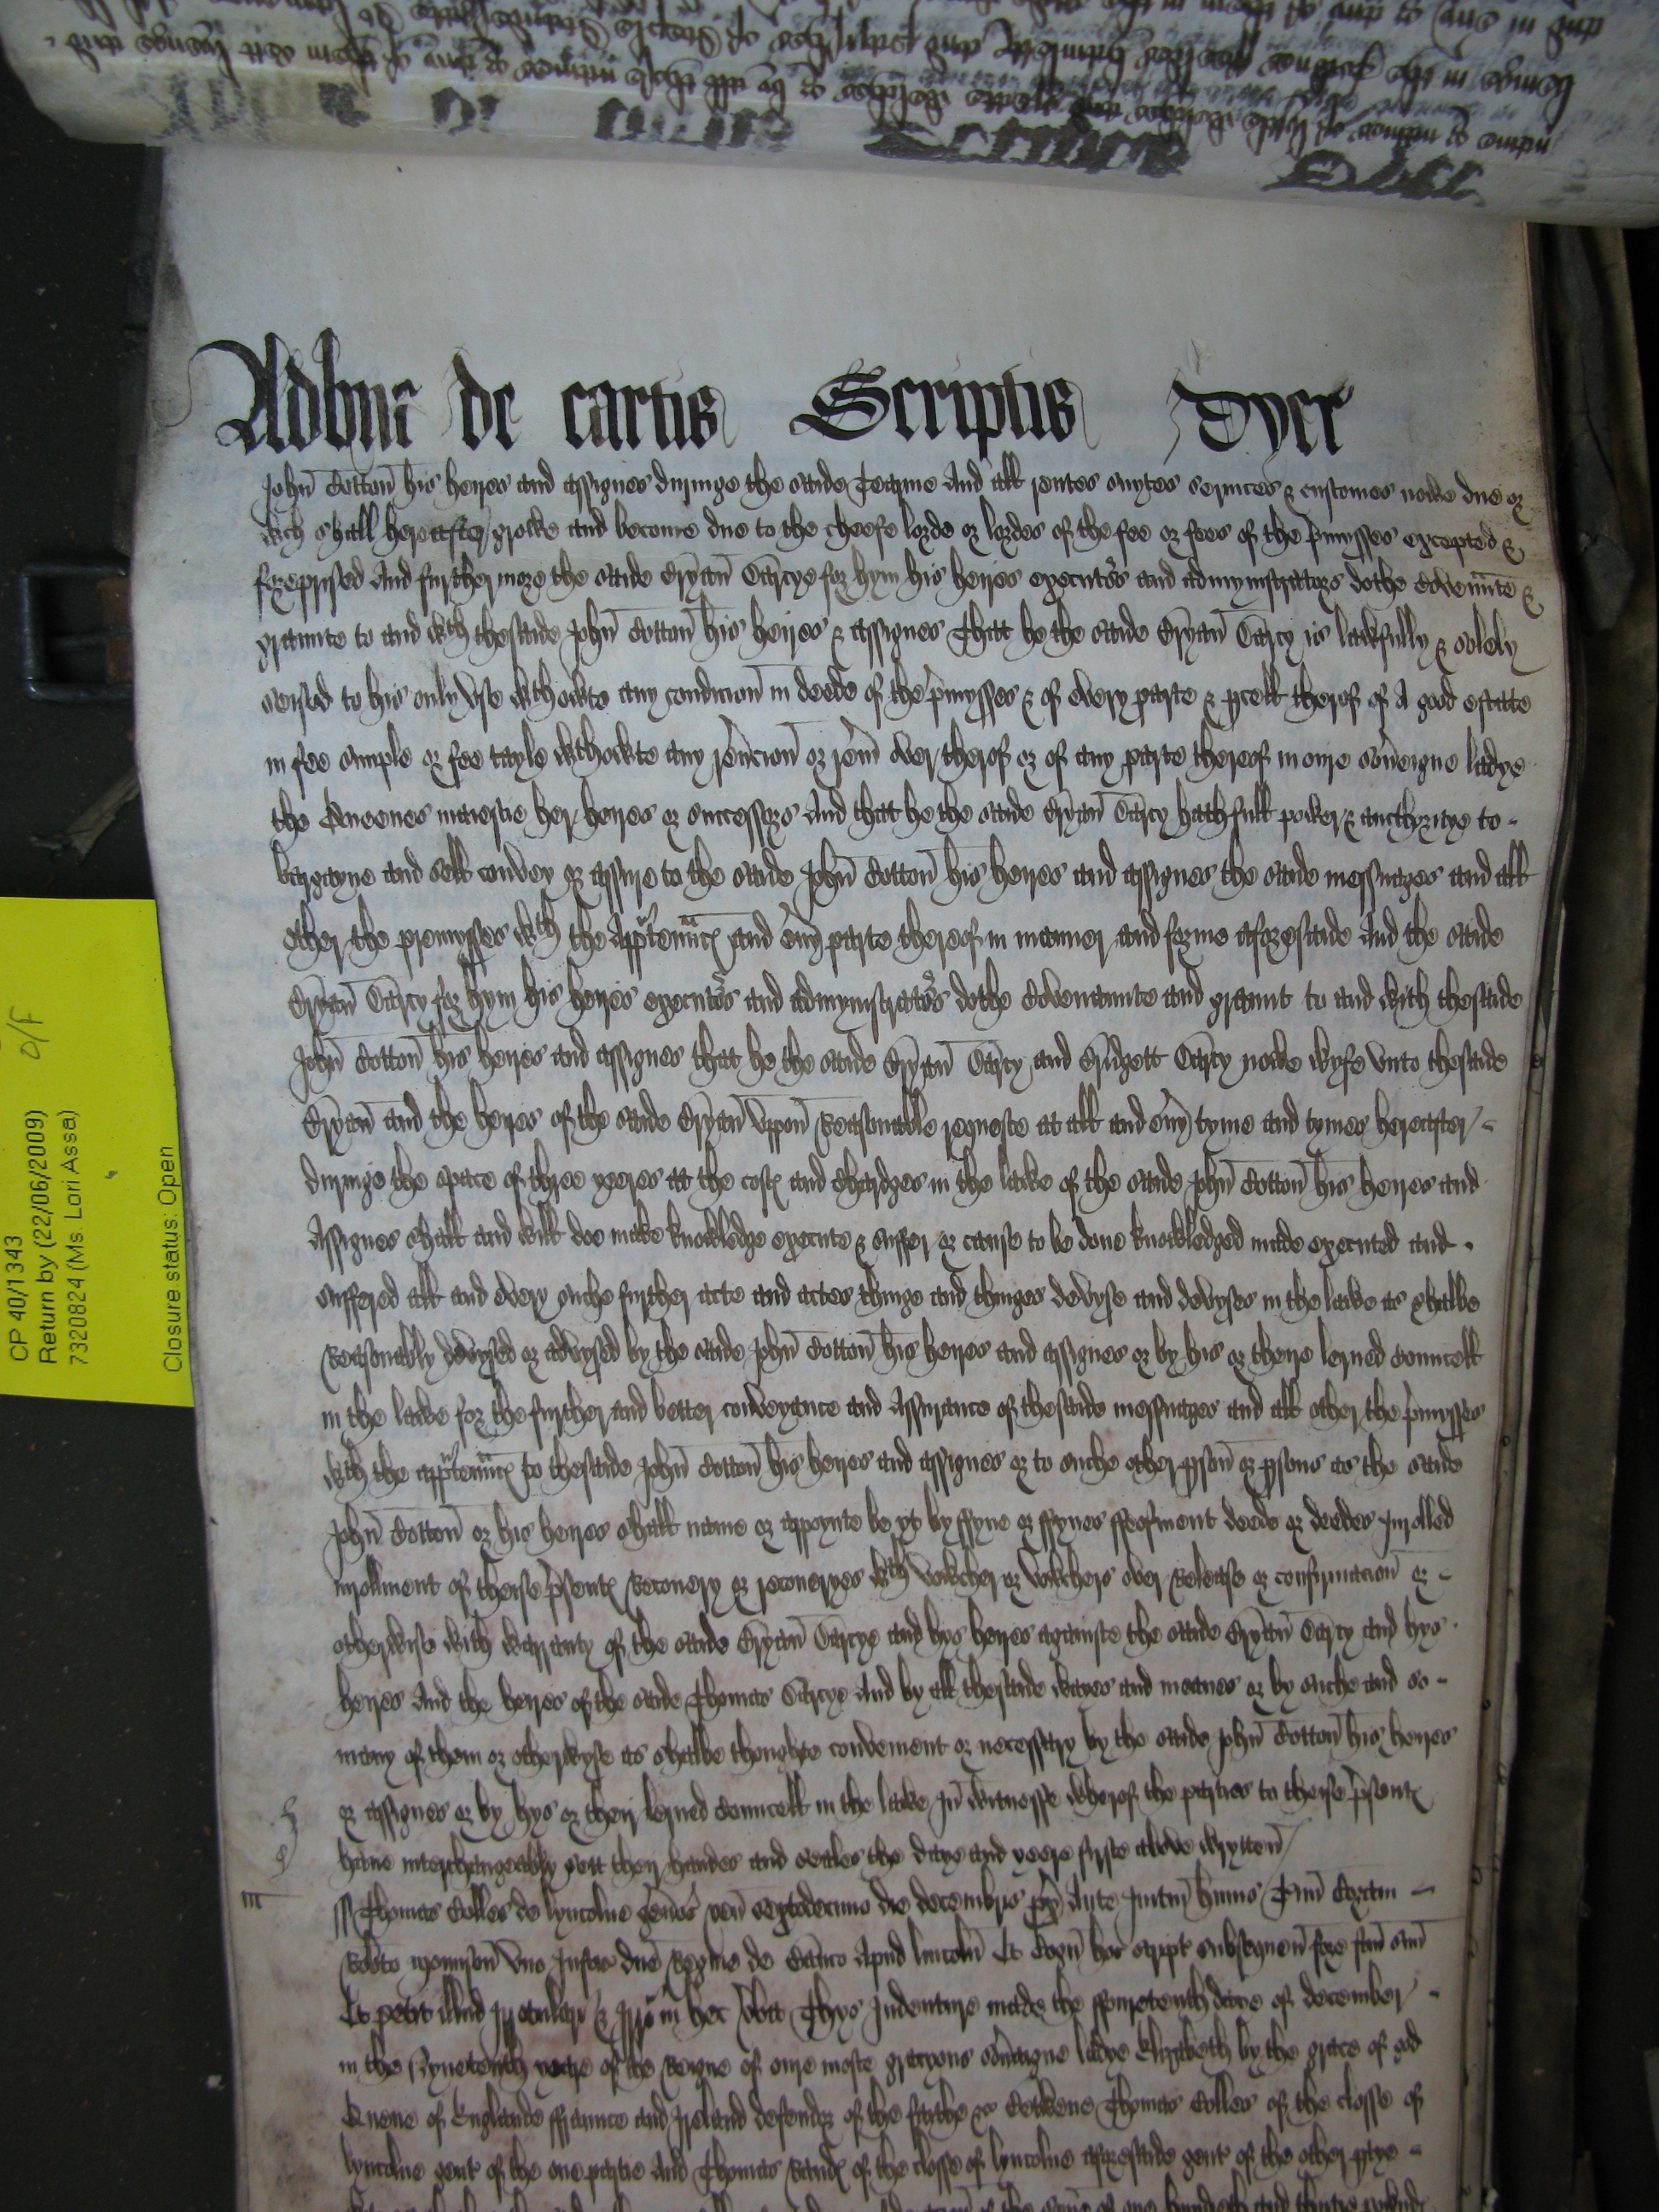 Adhuc de cartis Scriptis Dyer
John Cotton his heires and assignes duringe the saide Tearme And all rentes suytes services & customes nowe due or
wch shall hereafter growe and become due to the cheefe lorde or lordes of the fee or fees of the pmysses excepted &
foreprised And furthermore the saide Bryan Darcye for hym his heires executors and admynistrators dothe Covennte &
graunte to and wth thesaide John Cotton his heires & assignes That he the saide Bryan Darcy is lawfully & solely
seised to his only vse wthowte any condicion in deede of the pmysses & of every parte & pcell therof of A good estate
in fee simple or fee tayle wthowte any revcion or rem over therof or of any parte thereof in oure soveigne ladye
the Queenes maiestie her heires or successors And that he the saide Bryan Darcy hath full power & aucthoritye to
bargayne and sell convey or assure to the saide John Cotton his heires and assignes the saide messuages and all
other the premysses wth the Apptennc and evy parte thereof in manner and forme aforesaide And the saide
Bryan Darcy for hym his heires executors and admynistrators dothe Covenaunte and graunt to and with thesaide
John Cotton his heires and assignes that he the saide Bryan Darcy and Bridgett Darcy nowe wyfe vnto thesaide
Bryan and the heires of the saide Bryan Vppon Reasonable requeste at all and evy tyme and tymes hereafter
duringe the space of three yeeres at the cost and Chardges in the lawe of the saide John Cotton his heires and
Assignes shall and will doe make knowledge execute & suffer or cause to be done knowledged made executed and
suffered all and every suche further acte and actes thinge and thinges devyse and devyses in the lawe as shalbe
Reasonably devysed or advysed by the saide John Cotton his heires and assignes or by his or theire lerned Councell
in the lawe for the further and better conveyance and Assurance of thesaide messuages and all other the pmysses
wth the apptennc to thesaide John Cotton his heires and assignes or to suche other pson or psons as the saide
John Cotton or his heires shall name or appoynte be yt by ffyne or ffynes ffeofment deede or deedes Inrolled
inrollment of theise psent Recovery or recoveryes wth Vowcher or Vowchers over Release or confirmacion or
otherwise with warranty of the saide Bryan Darcye and hys heires againste the saide Bryan Darcy and hys
heires And the heires of the saide Thomas Darcye And by all thesaide wayes and meanes or by suche and so
many of them or otherwyse as shalbe thoughte convenient or necessary by the saide John Cotton his heires
or assignes or by hys or their lerned Councell in the lawe In witnesse wherof the parties to theise psent
have interchangeably sett their handes and seales the daye and yeere firste above wrytten
Thomas Colles de lyncolne genos ven septedecimo die decembris px Ante Initm huius Tmi Coram
Robto mounson vno Justic dne Regine de Banco Apud lincoln Et Cogn hoc script subsequen fore fcm suu
Et petit illud Irrotulari & Irro in hec Vba Thys Indenture made the ffowretenth daie of december
in the Nynetenth yeare of the Reigne of oure moste gracyous soveraigne ladye Elizabeth by the grace of god
Quene of Englande ffraunce and Ireland defendor of the faithe &c Betwene Thomas Colles of the closse of
lyncolne gent of the one partie And Thomas Rand of the closse of lyncolne aforesaide gent of the other ptye
CP 40/1343
Return by (22/06/2009)
7320824 (Ms. Lori Assa)
Closure status: Open
O/F